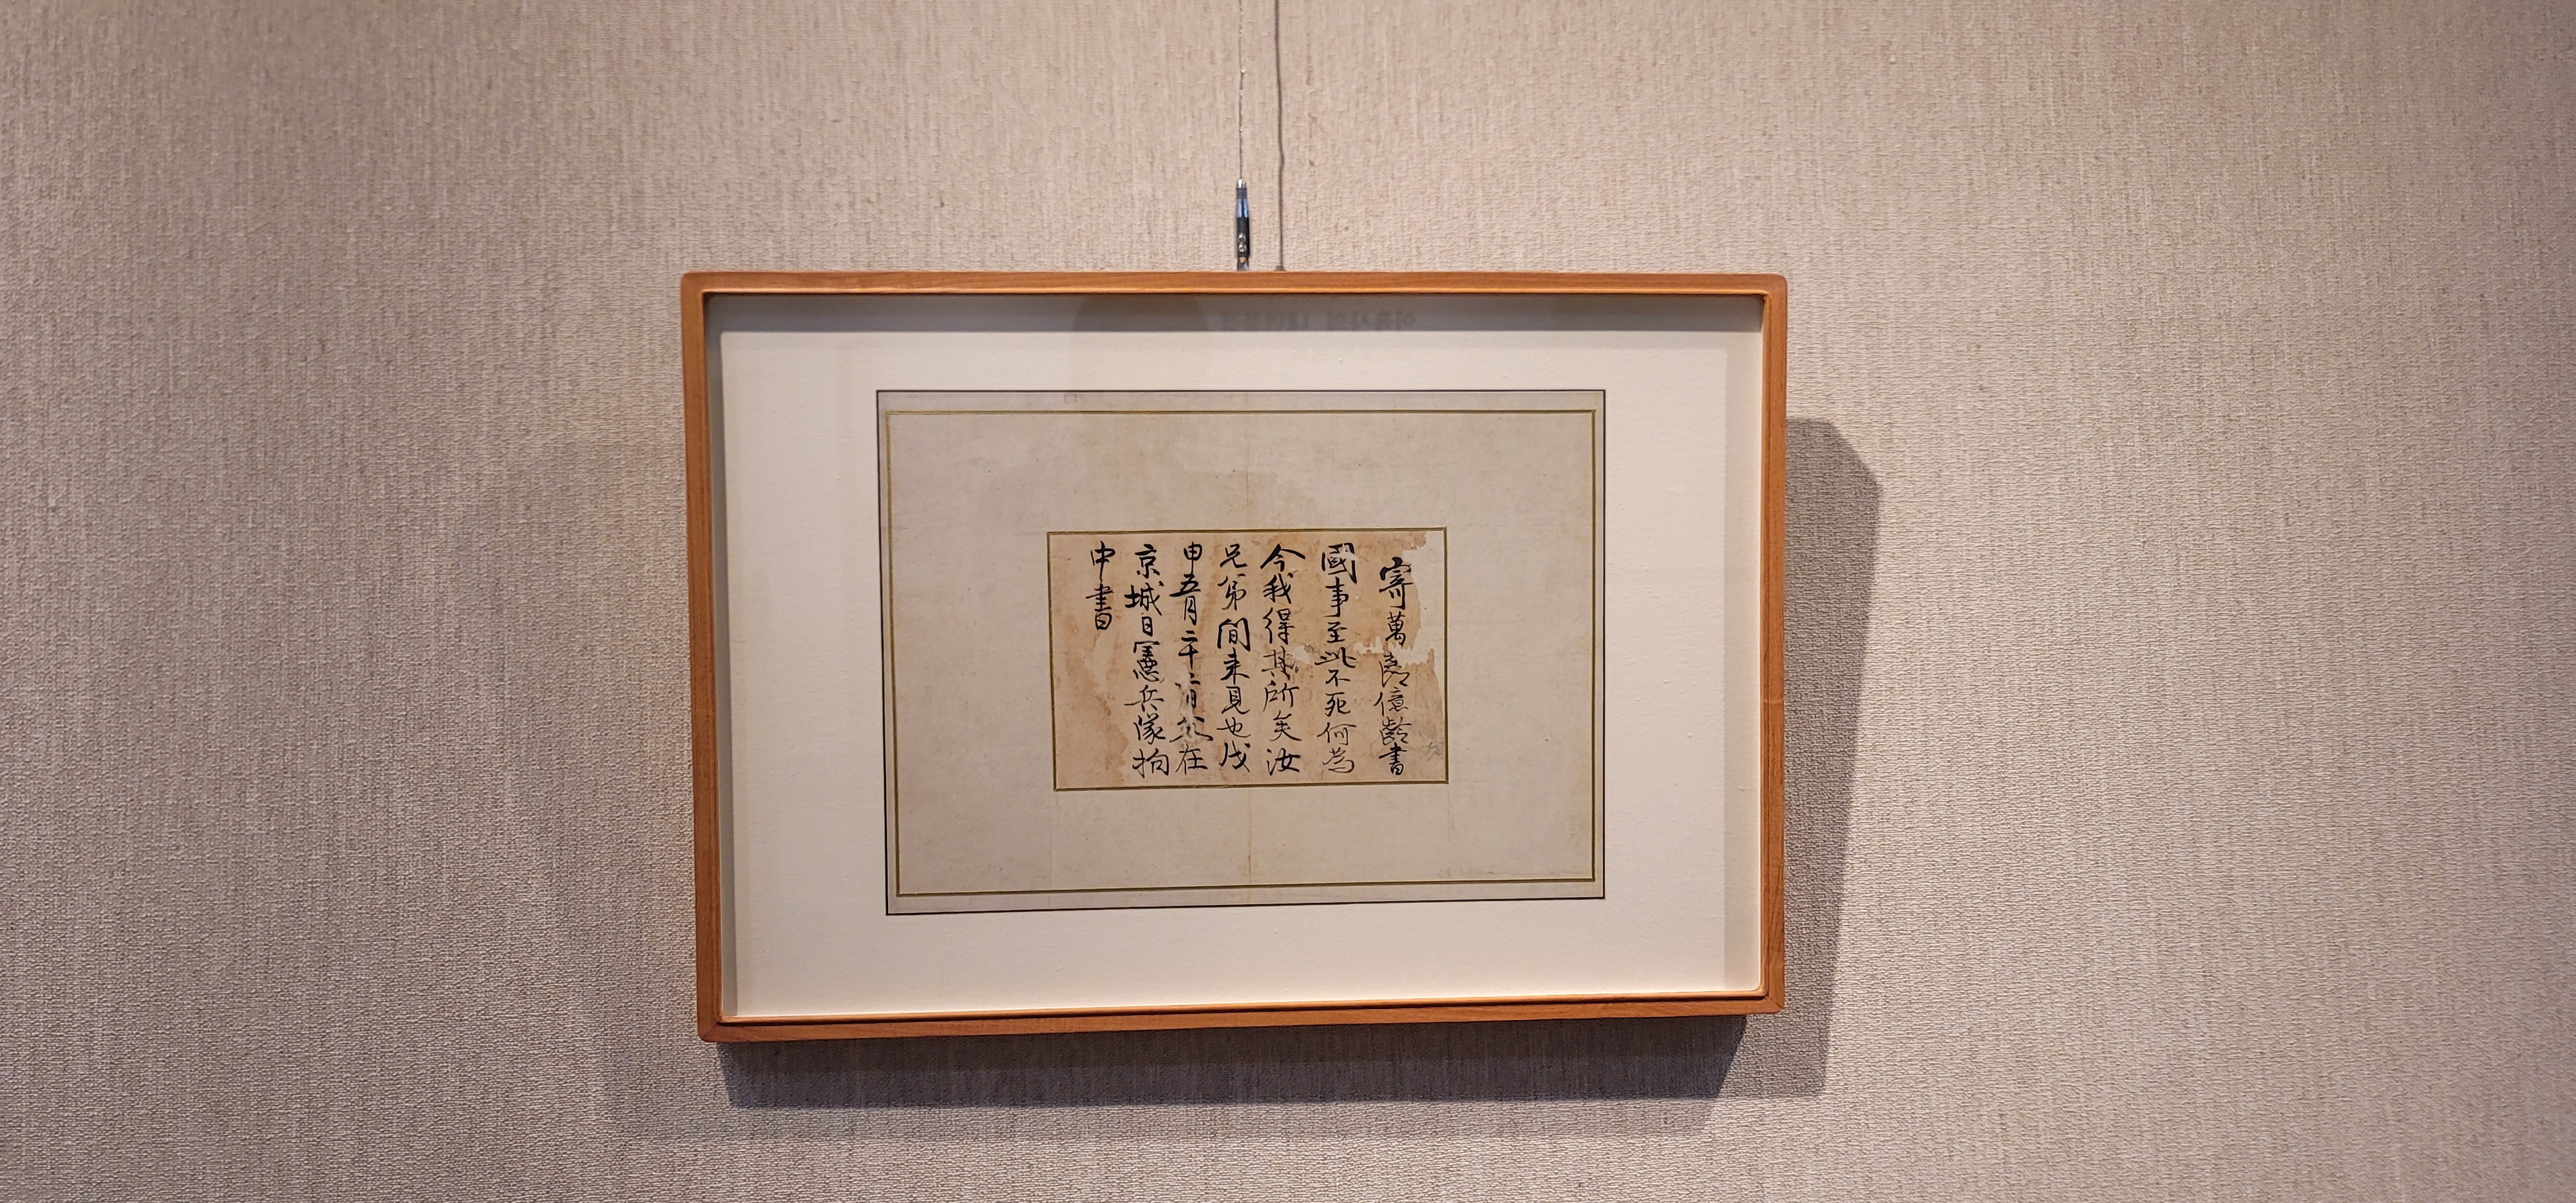 寄萬億齡書
國事至此不死何爲
今我得其所矣汝
兄弟間來見也戊
申五月二十日父在
京城日憲兵隊拘
中書